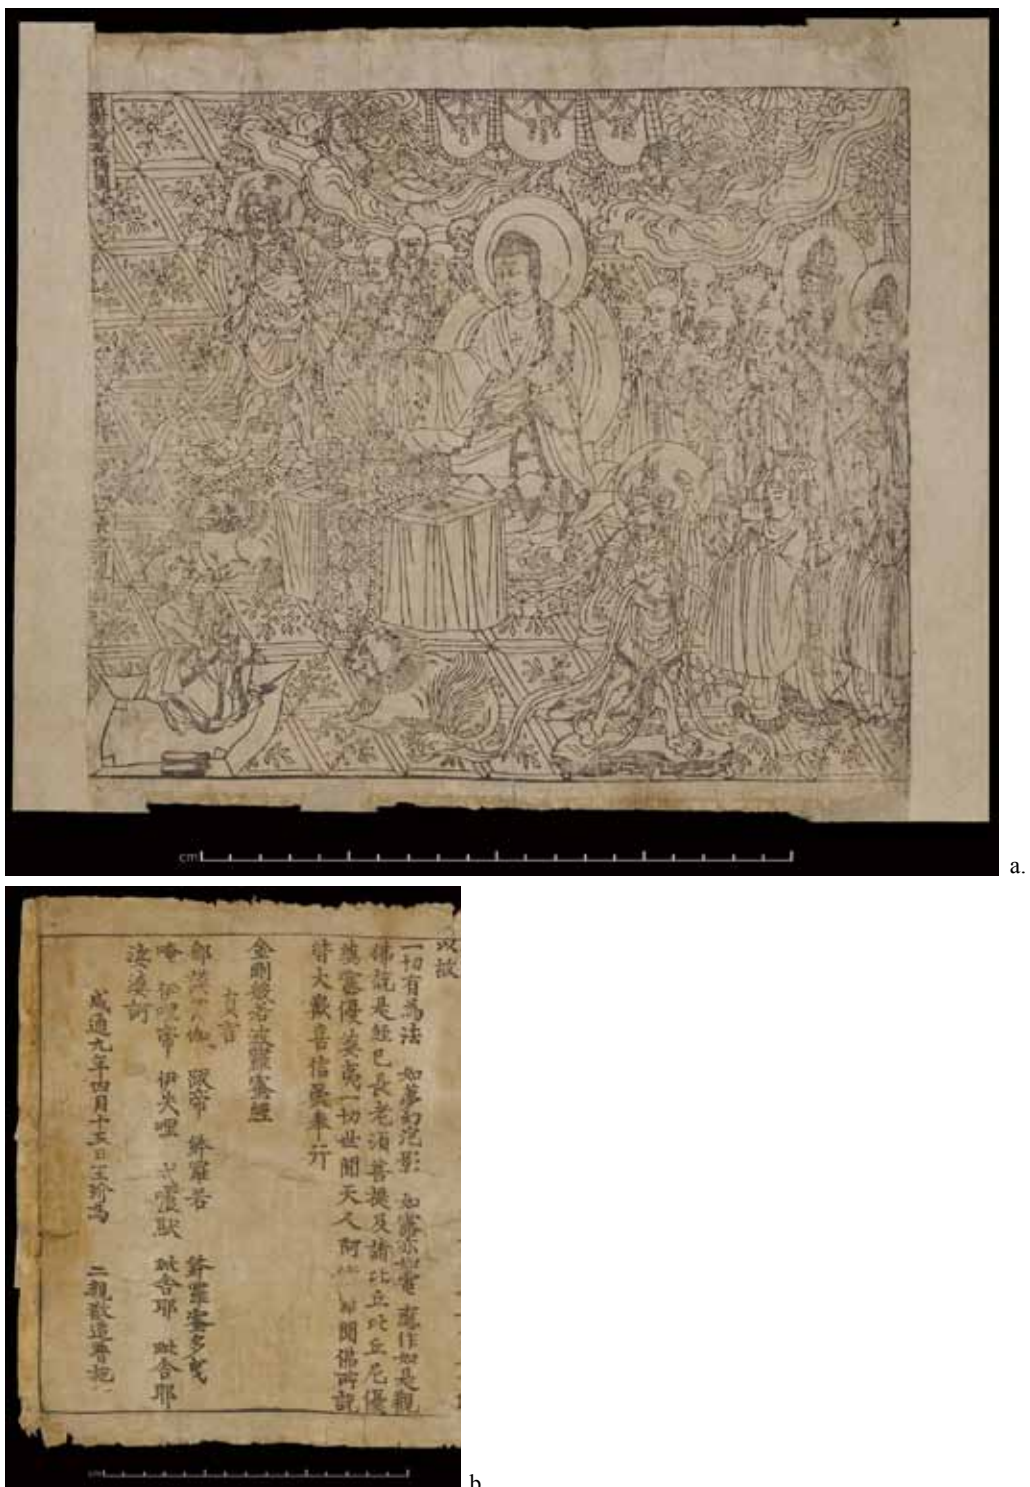 cm
a.
故
一切有為法 如夢幻泡影 如露亦如電 應作如是觀
佛說是經已長老須菩提及諸比丘比丘尼優
婆塞優婆夷一切世間天人阿 聞佛所說
皆大歡喜信受奉行
金剛般若波羅蜜經
真言
那謨 伽 跋帝 鉢羅若 鉢羅蜜多曳
唵 伊哩帝 伊失哩 戍嚧馱 毗舍耶 毗舍耶
莎婆訶
咸通九年四月十五日王玠為 二親敬造普施
cm
b